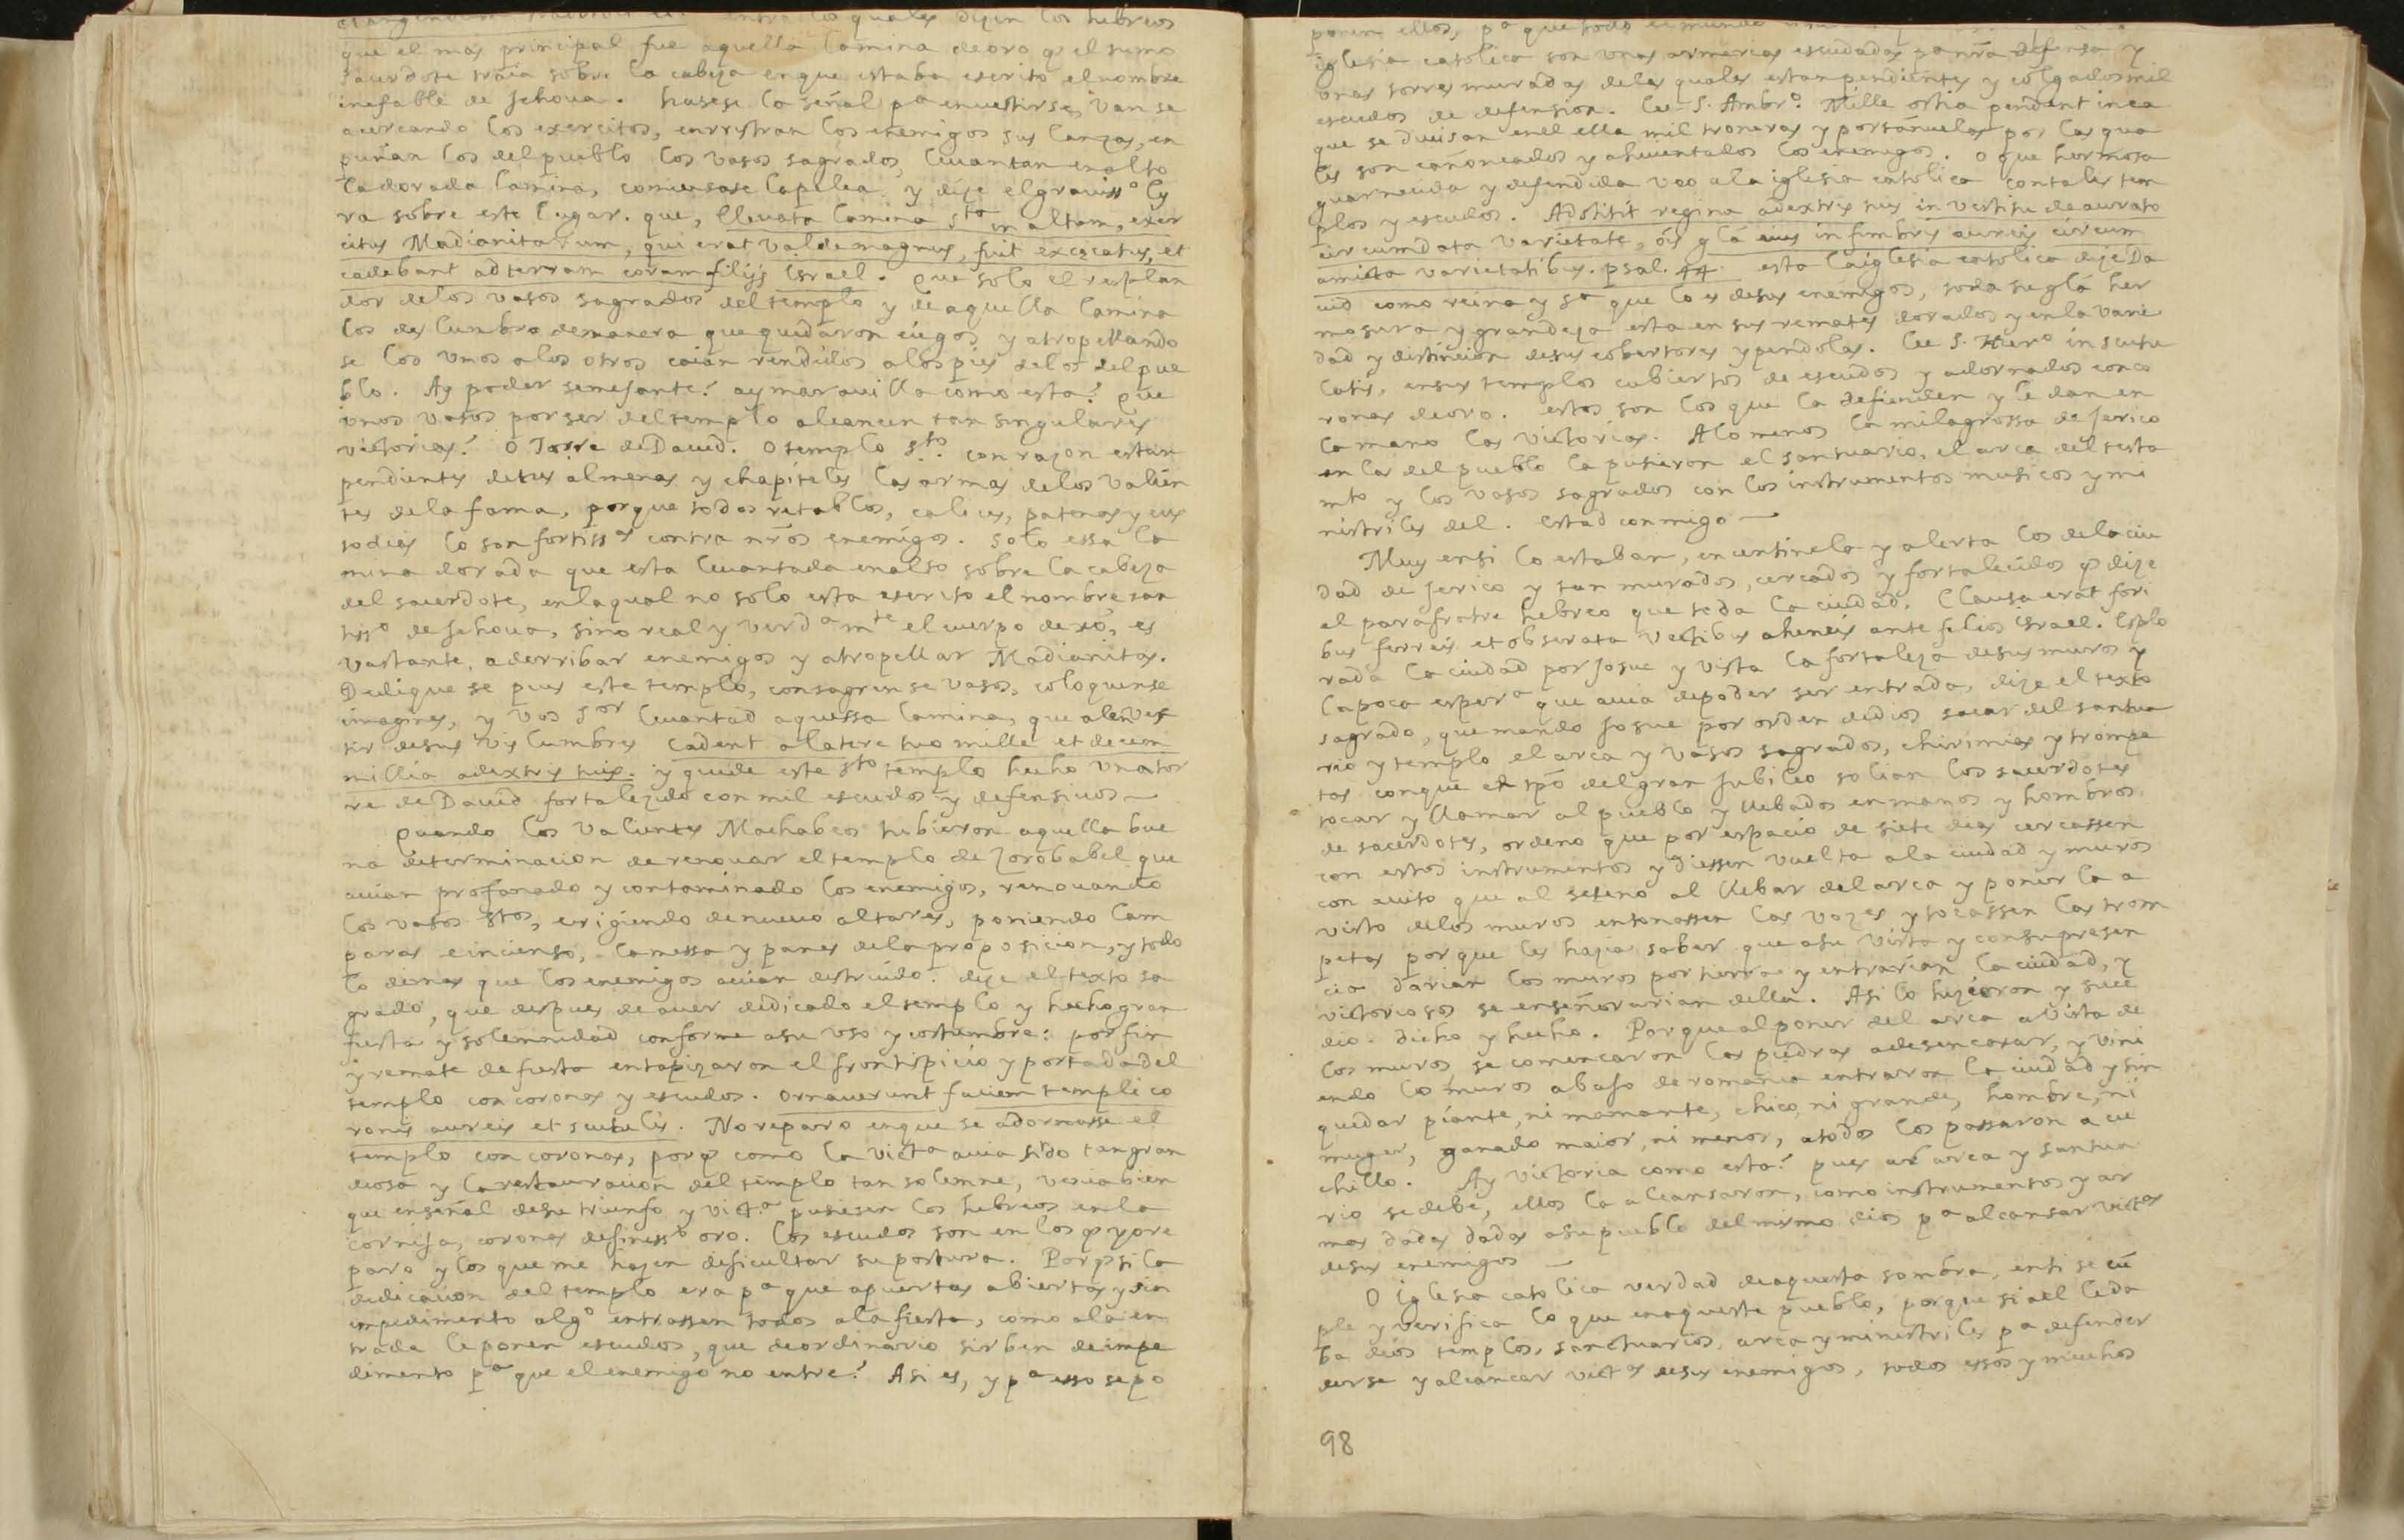 entra los quales dizen los hebreos
que el mas principal fue aquella lamina de oro q̃ el sumo
sacerdote traia sobre la cabeza en que estaba escrito el nombre
inefable de Jehoua. hasese la señal pa enuestirse, van se
acercando los exercitos, enrristran los enemigos sus lanzas, en
puñan los del pueblo los vasos sagrados, leuantan en alto
la dorada lamina, comiensase la pelea y dize el grauisso ly
ra sobre este lugar. que, lleuata lamina sta in altam, exer
citus Madianitarum, qui erat valde magnus, fuit excęcatus, et
cadebant ad terram coram filijs Israel. que solo el resplan
dor de los vasos sagrados del templo y de aquella lamina
los deslumbro de manera que quedaron ciegos y atropellando
se los vnos a los otros caian rendidos a los pies de los del pue
blo. Ay poder semejante? ay marauilla como esta? que
vnos vasos por ser del templo alcancen tan singulares
victorias? O Torre de Dauid. O templo sto. con razon estan
pendientes de tus almenas y chapiteles las armas de los valien
tes de la fama, porque todos retablos, calices, patenas y cus
todias lo son fortissas contra nr̃os enemigos. solo essa la
mina dorada que esta leuantada en alto sobre la cabeza
del sacerdote, en la qual no solo esta escrito el nombre san
tisso de Jehoua, sino real y verdamte el cuerpo de xõ, es
vastante, a derribar enemigos y atropellar Madianitas.
Dedique se pues este templo, consagrense vasos, coloquense
imagines, y vos sor leuantad aquessa lamina, que al enves
tir de sus vislumbres cadent a latere tuo mille et decem
millia a dextris tuis. y quede este sto templo hecho vna tor
re de Dauid fortalezido con mil escudos y defensiuos —
Quando los valientes Machabeos tubieron aquella bue
na determinacion de renouar el templo de Zorobabel que
auian profanado y contaminado los enemigos, renouando
los vasos stos, erigiendo de nueuo altares, poniendo lam
paras e incienso, la messa y panes de la proposicion, y todo
lo demas que los enemigos auian destruido. dize el texto sa
grado, que despues de auer dedicado el templo y hecho gran
fiesta y solemnidad conforme a su vso y costumbre: por fin
y remate de fiesta entapizaron el frontispicio y portada del
templo con coronas y escudos. ornauerunt faciem templi co
ronis aureis et scutulis. No reparo en que se adornasse el
templo con coronas, porq̃ como la victa auia sido tan gran
diosa y la restauracion del templo tan solemne, venia bien
que en señal de su triunfo y victa pusiesen los hebreos en la
cornisa, coronas de finisso oro. los escudos son en los q̃ yo re
paro y los que me hazen dificultar su postura. Porq̃ si la
dedicacion del templo era pa que a puertas abiertas y sin
impedimento algo entrassen todos a la fiesta, como a la en
trada le ponen escudos, que de ordinario sirben de impe
dimento pa que el enemigo no entre? Asi es, y pa esso se po
ponen ellos, pa que todo el mundo
iglesia catolica son vnas armerias escudadas pa nr̃a defensa y
vnas torres muradas de las quales estan pendientes y colgados mil
escudos de defension. lee S. Ambro. Mille ostia pendent in ea
que se diuisan en el ella mil troneras y portañuelas por las qua
les son cañoneados y ahuientados los enemigos. O que hermosa
guarnecida y defendida veo a la iglesia catolica con tales tem
plos y escudos. Adstitit regina a dextris tuis in vestitu deaurato
circumdata varietate, ois gl̃a eius in fimbrijs aureis circum
amicta varietatibus. psal. 44. esta la iglesia catolica dize Da
uid como reina y sa que lo es de sus enemigos, toda su gl̃a her
mosura y grandeza esta en sus remates dorados y en la varie
dad y distincion de sus cobertores y pendolas. lee S. Hiero in scutu
latis, en sus templos cubiertos de escudos y adornados con co
ronas de oro. estos son los que la defienden y le dan en
la mano las victorias. A lo menos la milagrossa de Jerico
en las del pueblo la pusieron el santuario, el arca del testa
mto y los vasos sagrados con los instrumentos musicos y mi
nistriles del. Estad conmigo —
Muy en si lo estaban, en centinela y alerta los de la ciu
dad de Jerico y tan murados, cercados y fortalecidos q̃ dize
el parafraste hebreo que toda la ciudad, Clausa erat fori
bus ferreis et obserata vectibus aheneis ante filios Israel. Explo
rada la ciudad por Josue y vista la fortaleza de sus muros y
la poca espera que auia de poder ser entrada, dize el texto
sagrado, que mando Josue por orden de dios sacar del santua
rio y templo el arca y vasos sagrados, chirimias y trompe
tas con que el tpõ del gran Jubileo solian los sacerdotes
tocar y llamar al pueblo y llebados en manos y hombros
de sacerdotes, ordeno que por espacio de siete dias cercassen
con estos instrumentos y diessen vuelta a la ciudad y muros
con auiso que al seteno al llebar del arca y poner la a
vista de los muros entonassen las vozes y tocassen las trom
petas porque les hazia saber que a su vista y con su presen
cia darian los muros por tierra y entrarian la ciudad, y
victoriosos se enseñorarian della. Asi lo hizieron y suce
dio dicho y hecho. Porque al poner del arca a vista de
los muros se comencaron las piedras a desencaxar, y vini
endo los muros abajo de romania entraron la ciudad y sin
quedar piante, ni mamante, chico, ni grande, hombre, ni
muger, ganado maior, ni menor, a todos los passaron a cu
chillo. Ay victoria como esta? pues al arca y santua
rio se debe, ellos la alcansaron, como instrumentos y ar
mas dadas dadas a su pueblo del mismo dios pa alcansar victas
de sus enemigos —
O iglesia catolica verdad de aquesta sombra, en ti se cũ
ple y verifica lo que en aqueste pueblo, porque si a el le da
ba dios templos, sanctuarios, arca y ministriles pa defender
derse y alcancar victas de sus enemigos, todos essos y muchos
98